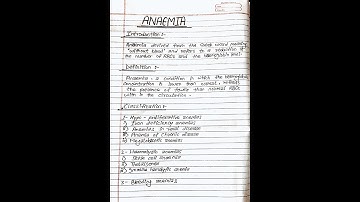 ANAEMIA
Introduction :-
Anaemia derived from the Greek word meaning
"without blood" and refers to a reduction of
the number of RBCs and the Haemoglobin level.
Definition :-
Anaemia : a condition in which the Haemoglobin
concentration is lower than normal, reflects
the presence of fewer than normal RBCs
within the circulation.
Classification :-
1- Hypo-proliferative anemias
i) Iron deficiency anemias
ii) Anaemias in renal disease
iii) Anaemia of chronic disease
iv) Megaloblastic anemias
2- Haemolytic anemias
i) Sickle cell
ii) Thalassemia
iii) hemolytic anemia
3- Bleeding anemias